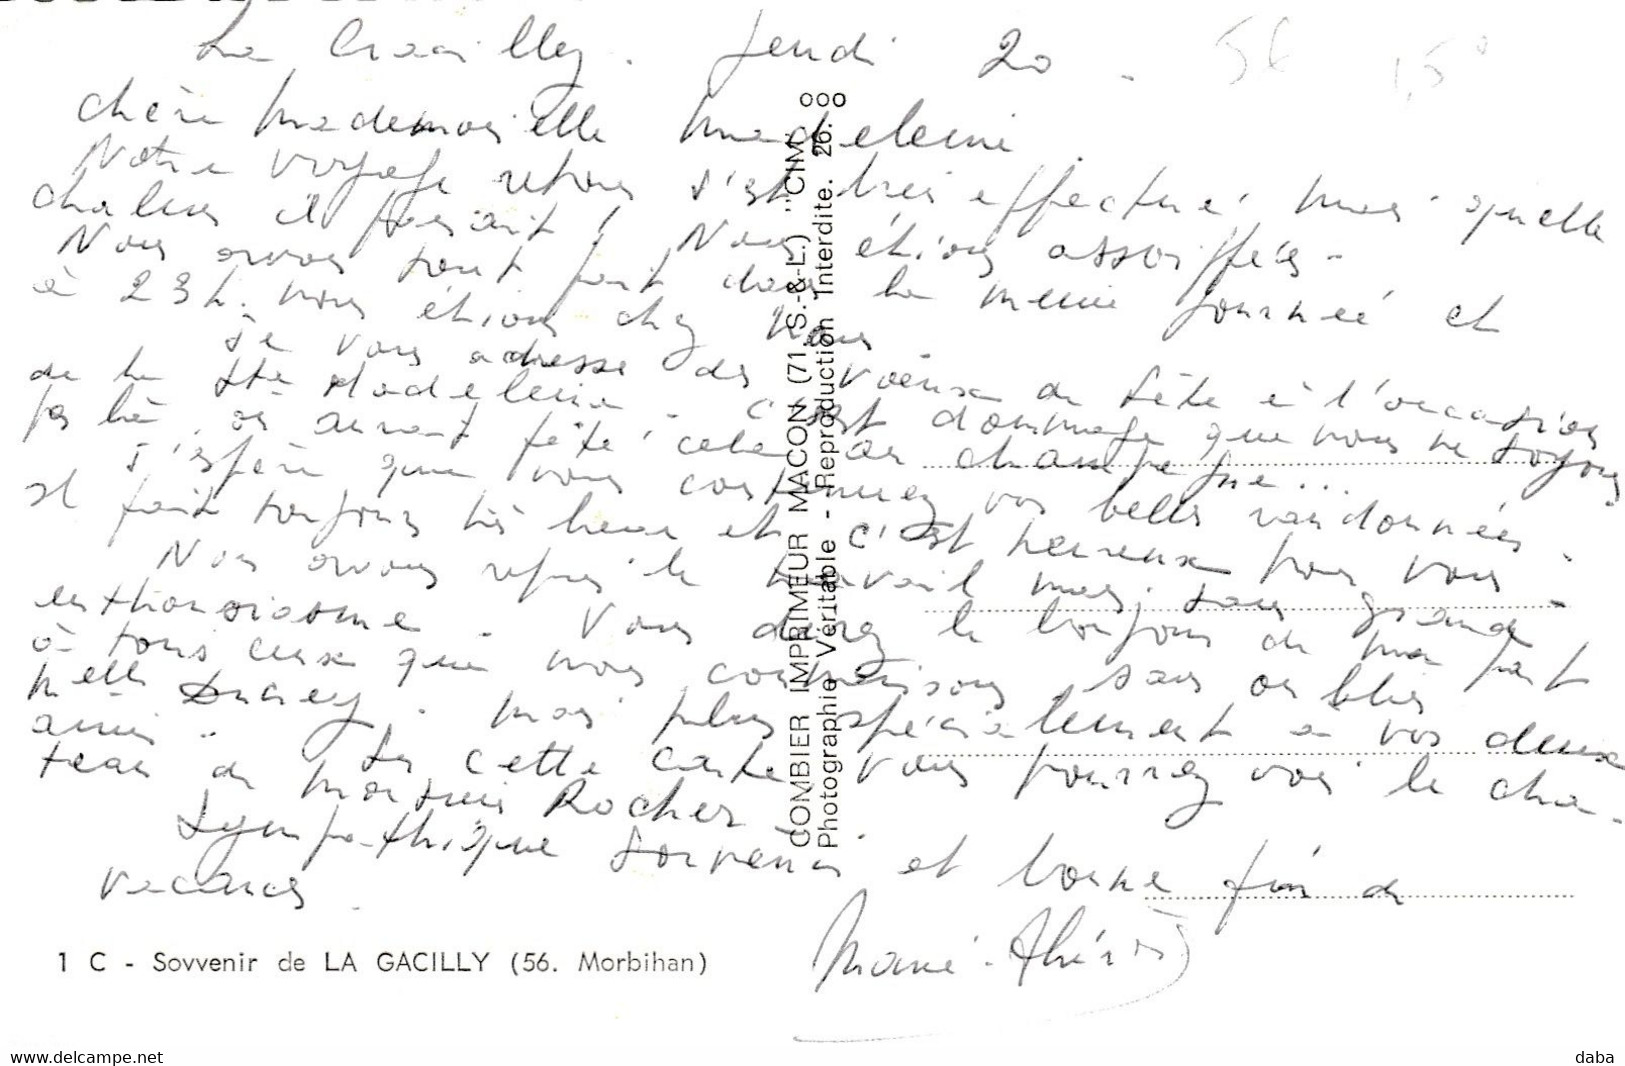 La Gacilly. Jeudi 20.
56 1,5°
Chère Mademoiselle Madeleine
Notre voyage retour s'est très effectué mais quelle
chaleur il faisait ! Nous étions assoiffées -
Nous avons tout fait dans la même journée et
à 23h. nous étions chez nous
Je vous adresse des voeux de fête à l'occasion
de la Ste Madeleine. C'est dommage que nous ne soyons
pas là, on aurait fêté cela au champagne...
J'espère que vous continuez vos belles randonnées.
Il fait toujours très beau et c'est heureux pour vous.
Nous avons repris le travail mais sans grand
enthousiasme. Vous direz le bonjour de ma part
à tous ceux que nous connaissons sans oublier
Melle mais plus spécialement à vos deux
amis. Sur cette carte vous pourrez voir le châ-
teau de Monsieur Rocher
Sympathique souvenir et bonne fin de
vacances.
Marie-Thérèse
COMBIER IMPRIMEUR MACON (71. S.-&-L.) "CIM"
Photographie Véritable - Reproduction Interdite. 26.
1 C - Souvenir de LA GACILLY (56. Morbihan)
www.delcampe.net
daba